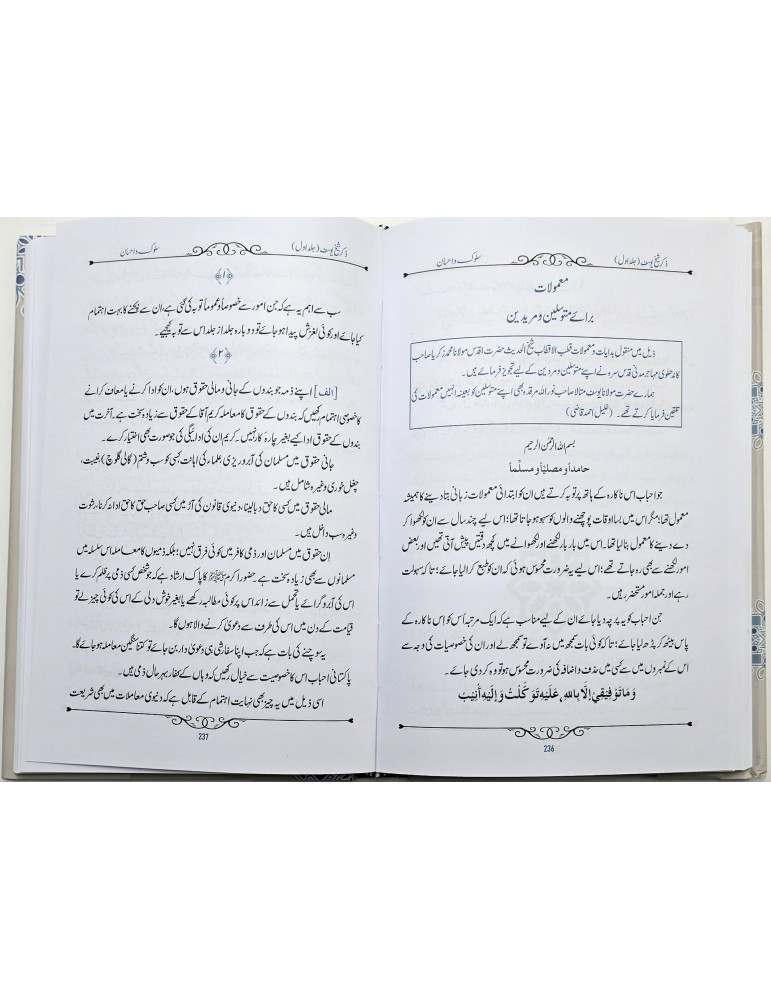 ذکر شیخ یوسفؒ (جلد اول)
سلوک و احسان
معمولات
برائے متوسلین و مریدین
ذیل میں منقول ہدایات و معمولات قطب الاقطاب شیخ الحدیث حضرت اقدس مولانا محمد زکریا صاحب
کاندھلوی مہاجر مدنی قدس سرہ نے اپنے متوسلین و مردین کے لیے تجویز فرمائے ہیں۔
ہمارے حضرت مولانا یوسف متالا صاحب نور اللہ مرقدہ بھی اپنے متوسلین کو بعینہ انہیں معمولات کی
تلقین فرمایا کرتے تھے۔ (خلیل احمد قاضی)
بسم اللہ الرحمٰن الرحیم
حامداً و مصلیاً و مسلّماً
جو احباب اس ناکارہ کے ہاتھ پر توبہ کرتے ہیں ان کو ابتدائی معمولات زبانی بتا دینے کا ہمیشہ
معمول تھا؛ مگر اس میں بسا اوقات پوچھنے والوں کو سہو ہو جاتا تھا؛ اس لیے چند سال سے ان کو لکھوا کر
دے دینے کا معمول بنا لیا تھا۔ اس میں بار بار لکھنے اور لکھوانے میں کچھ دقتیں پیش آتی تھیں اور بعض
امور لکھنے سے بھی رہ جاتے تھے؛ اس لیے یہ ضرورت محسوس ہوئی کہ ان کو طبع کرا لیا جائے؛ تاکہ سہولت
رہے اور جملہ امور مستحضر رہیں۔
جن احباب کو یہ پرچہ دیا جائے ان کے لیے مناسب ہے کہ ایک مرتبہ اس کو اِس ناکارہ کے
پاس بیٹھ کر پڑھ لیا جائے؛ تاکہ کوئی بات سمجھ میں نہ آوے تو سمجھ لے اور ان کی خصوصیات کی وجہ سے
اس کے نمبروں میں سے کسی میں حذف و اضافہ کی ضرورت محسوس ہو تو وہ کر دی جائے۔
وَمَا تَوْفِيْقِيْ اِلَّا بِاللهِ، عَلَيْهِ تَوَكَّلْتُ وَإِلَيْهِ أُنِيْبُ
236
ذکر شیخ یوسفؒ (جلد اول)
سلوک و احسان
﴿۱﴾
سب سے اہم یہ ہے کہ جن امور سے خصوصاً و عموماً توبہ کی گئی ہے، ان سے بچنے کا بہت اہتمام
کیا جائے اور کوئی لغزش پیدا ہو جائے تو دوبارہ جلد از جلد اس سے توبہ کیجیے۔
﴿۲﴾
[الف] اپنے ذمہ جو بندوں کے جانی و مالی حقوق ہوں، ان کو ادا کرنے یا معاف کرانے
کا خصوصی اہتمام رکھیں کہ بندوں کے حقوق کا معاملہ کریم آقا کے حقوق سے زیادہ سخت ہے۔ آخرت میں
بندوں کے حقوق ادا کیے بغیر چارۂ کار نہیں۔ کریم ان کی ادائیگی کی جو صورت بھی اختیار کرے۔
جانی حقوق میں مسلمان کی آبرو ریزی، علماء کی اہانت، کسی کو سب و شتم (گالی گلوچ)، غیبت،
چغل خوری وغیرہ شامل ہیں۔
مالی حقوق میں کسی کا حق دبا لینا، دنیوی قانون کی آڑ میں کسی صاحب حق کا حق ادا نہ کرنا، رشوت
وغیرہ سب داخل ہیں۔
اِن حقوق میں مسلمان اور ذمی کافر میں کوئی فرق نہیں؛ بلکہ ذمیوں کا معاملہ اس سلسلہ میں
مسلمانوں سے بھی زیادہ سخت ہے۔ حضورِ اکرم ﷺ کا پاک ارشاد ہے کہ جو شخص کسی ذمی پر ظلم کرے یا
اس کی آبرو گرائے یا تحمل سے زائد اس پر کوئی مطالبہ رکھے یا بغیر خوش دلی کے اس کی کوئی چیز لے تو
قیامت کے دن میں اس کی طرف سے دعویٰ کرنے والا ہوں گا۔
یہ سوچنے کی بات ہے کہ جب اپنا سفارشی ہی دعویٰ دار بن جائے تو کتنا سنگین معاملہ ہو جائے گا۔
پاکستانی احباب اس کا خصوصیت سے خیال رکھیں کہ وہاں کے کفار بہرحال ذمی ہیں۔
اسی ذیل میں یہ چیز بھی نہایت اہتمام کے قابل ہے کہ دنیوی معاملات میں بھی شریعت
237